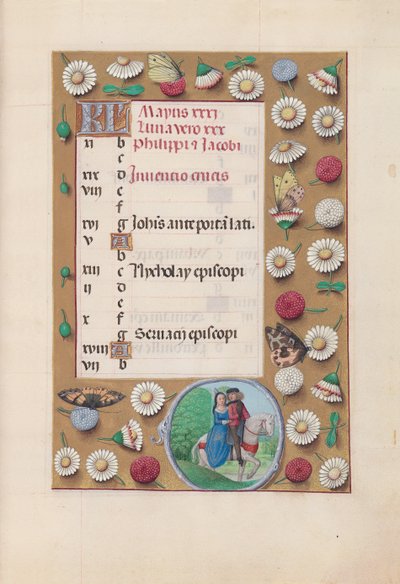 KL Mayus xxxj
Luna vero xxx
xi b Philippi ⁊ Jacobi
c
xix d Inventio crucis
viii e
f
xvi g Johis ante porta lati.
v A
b
xiii c Nycholay episcopi
ii d
e
x f
g Servacij episcopi
xviii A
vii b